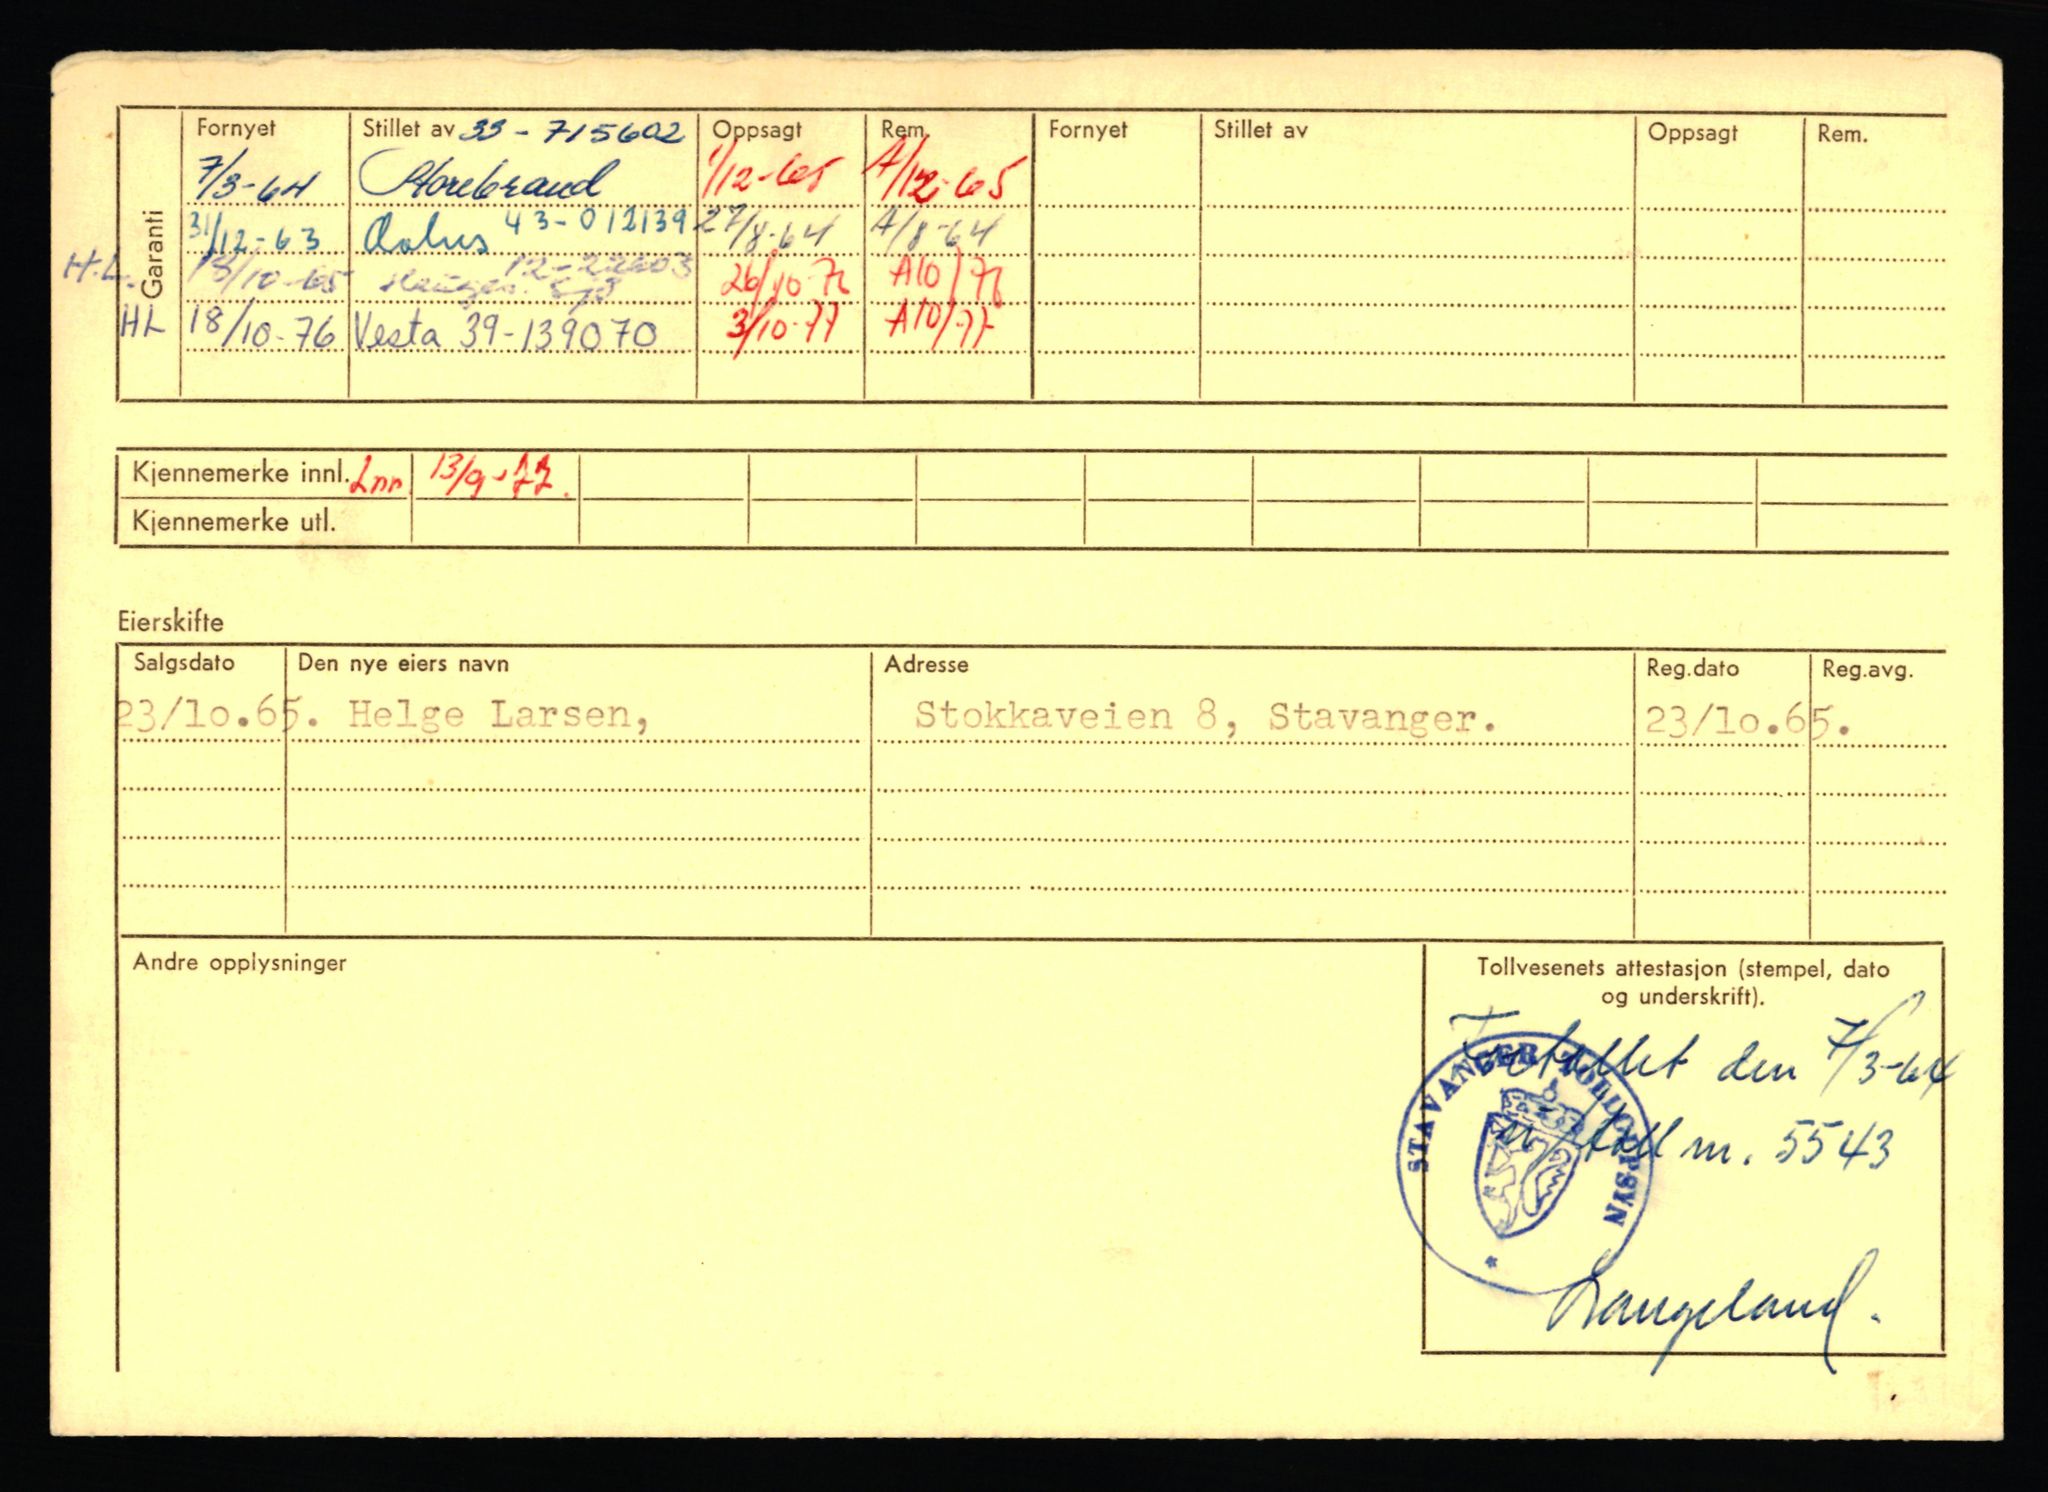 Garanti
Fornyet Stillet av 33-715602 Oppsagt Rem. Fornyet Stillet av Oppsagt Rem.
7/3-64 Storebrand 1/12-65 A/12-65
31/12-63 43-012139 27/8-64 A/8-64
H.L. 18/10-65 12-22603 26/10-76 A10/76
HL 18/10-76 Vesta 39-139070 3/10-77 A10/77
Kjennemerke innl. Lnn. 13/9-77.
Kjennemerke utl.
Eierskifte
Salgsdato Den nye eiers navn Adresse Reg.dato Reg.avg.
23/10.65. Helge Larsen, Stokkaveien 8, Stavanger. 23/10.65.
Andre opplysninger
Tollvesenets attestasjon (stempel, dato
og underskrift).
Fortollet den 7/3-64
toll nr. 5543
STAVANGER TOLLOPPSYN
Langeland.